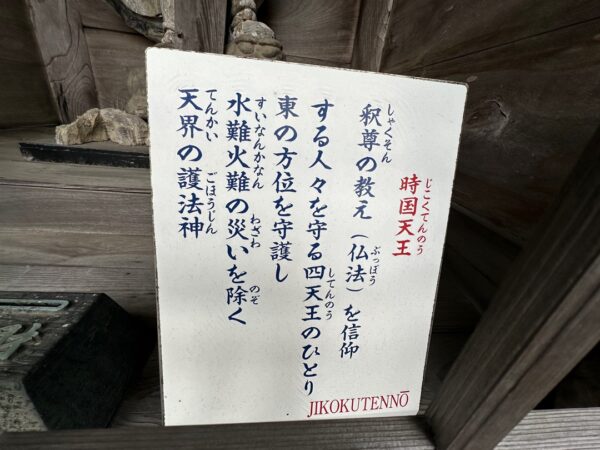 時国天王
じこくてんのう
釈尊の教え(仏法)を信仰
しゃくそん
ぶっぽう
する人々を守る四天王のひとり
してんのう
東の方位を守護し
水難火難の災いを除く
すいなんかなん
わざわ
のぞ
天界の護法神
てんかい
ごほうじん
JIKOKUTENNŌ